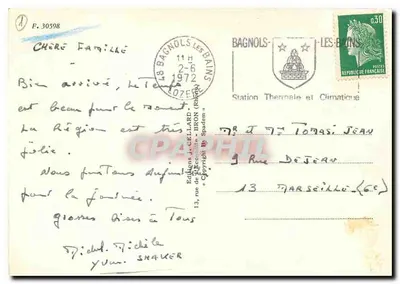 1
P. 30598
CHÈRE FAMILLE
Bien arrivé, Le Temps
est beau pour le moment.
La Région est très
jolie.
Nous partons aujourd'hui
pour la journée.
grosses Bises à Tous
Michel. Michèle
Yvan. SHAKER
48 BAGNOLS LES BAINS
11 H
2-6
1972
LOZERE
BAGNOLS-LES-BAINS
Station Thermale et Climatique
0,30
POSTES
REPUBLIQUE FRANÇAISE
Editions J. CELLARD
BRON (Rhône)
Mr et Mme TOMASI JEAN
9 RUE DEJEAN
13 MARSEILLE (6e)
CPAPHIL.COM